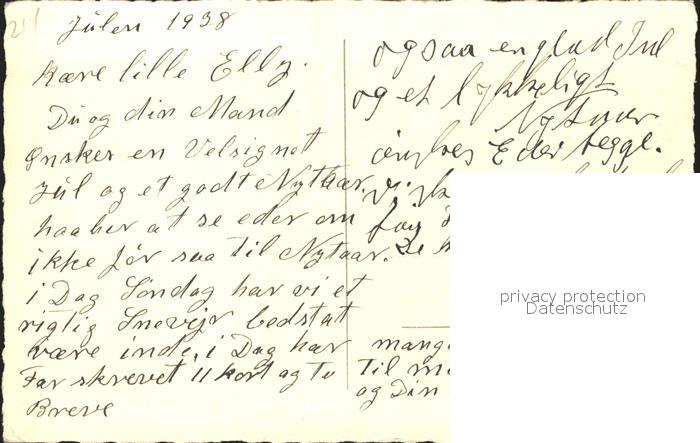 Julen 1938
Kære lille Elly.
Du og din Mand
Ønskes en Velsignet
Jul og et godt Nytaar,
haaber at se eder om
ikke før saa til Nytaar.
i Dag Søndag har vi et
rigtig Snevejr bedst at
være inde, i Dag har
Far skrevet 11 kort og to
Breve
ogsaa en glad Jul
og et lykkeligt
Nytaar
ønskes Eder begge.
Vi
for
Se
mang
Til m
og Din
privacy protection
Datenschutz